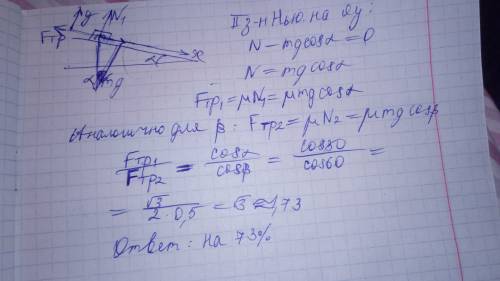 y N₁
Fтр
x
α
α mg
II з-н Нью. на Oy:
N - mg cosα = 0
N = mg cosα
Fтр₁ = μN₁ = μmg cosα
Аналогично для β: Fтр₂ = μN₂ = μmg cosβ
Fтр₁/Fтр₂ = cosα/cosβ = cos30/cos60 =
= √3/(2·0,5) = √3 ≈ 1,73
Ответ: на 73%